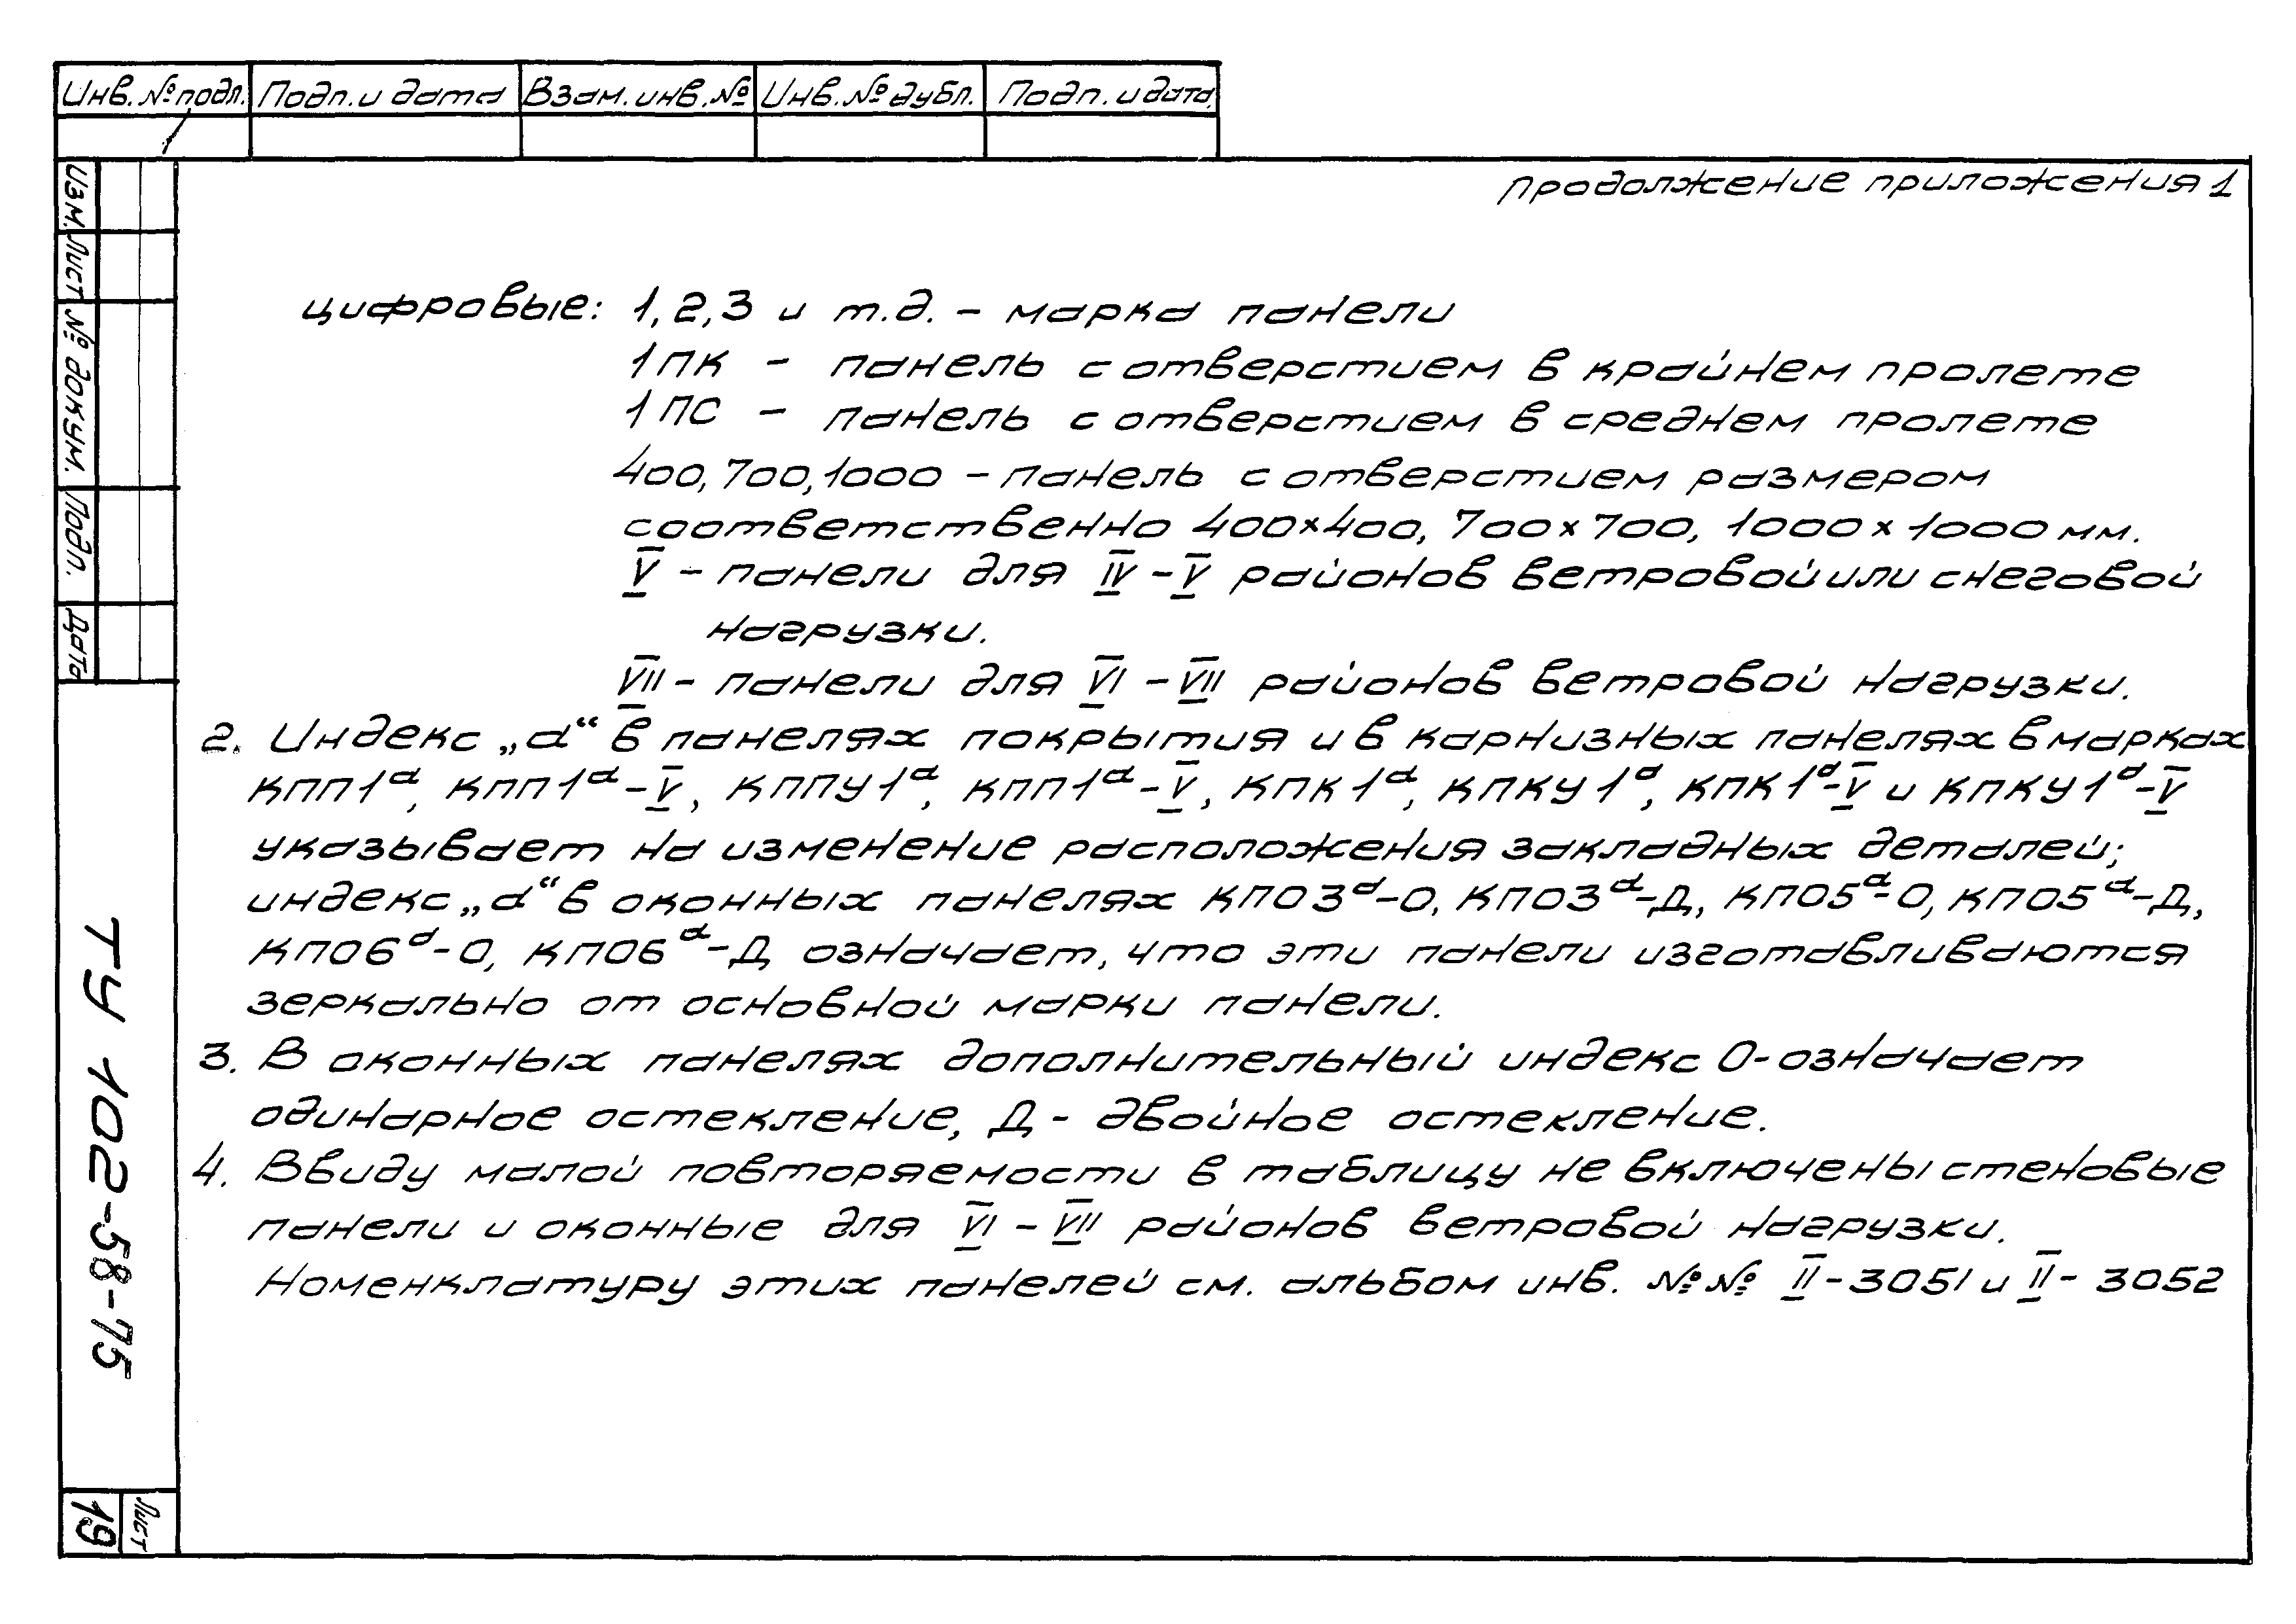 Инв. № подл. Подп. и дата Взам. инв. № Инв. № дубл. Подп. и дата
Изм. Лист № докум. Подп. Дата
продолжение приложения 1
цифровые: 1, 2, 3 и т.д. – марка панели
1ПК – панель с отверстием в крайнем пролете
1ПС – панель с отверстием в среднем пролете
400, 700, 1000 – панель с отверстием размером
соответственно 400×400, 700×700, 1000×1000 мм.
V – панели для IV – V районов ветровой или снеговой
нагрузки.
VII – панели для VI – VII районов ветровой нагрузки.
2. Индекс „а“ в панелях покрытия и в карнизных панелях в марках
КПП1ᵃ, КПП1ᵃ–V, КППУ1ᵃ, КПП1ᵃ–V, КПК1ᵃ, КПКУ1ᵃ, КПК1ᵃ–V и КПКУ1ᵃ–V
указывает на изменение расположения закладных деталей;
индекс „а“ в оконных панелях КПО3ᵃ–О, КПО3ᵃ–Д, КПО5ᵃ–О, КПО5ᵃ–Д,
КПО6ᵃ–О, КПО6ᵃ–Д означает, что эти панели изготавливаются
зеркально от основной марки панели.
3. В оконных панелях дополнительный индекс О-означает
одинарное остекление, Д - двойное остекление.
4. Ввиду малой повторяемости в таблицу не включены стеновые
панели и оконные для VI – VII районов ветровой нагрузки.
Номенклатуру этих панелей см. альбом инв. №№ II-3051 и II-3052
ТУ 102-58-75
Лист
19